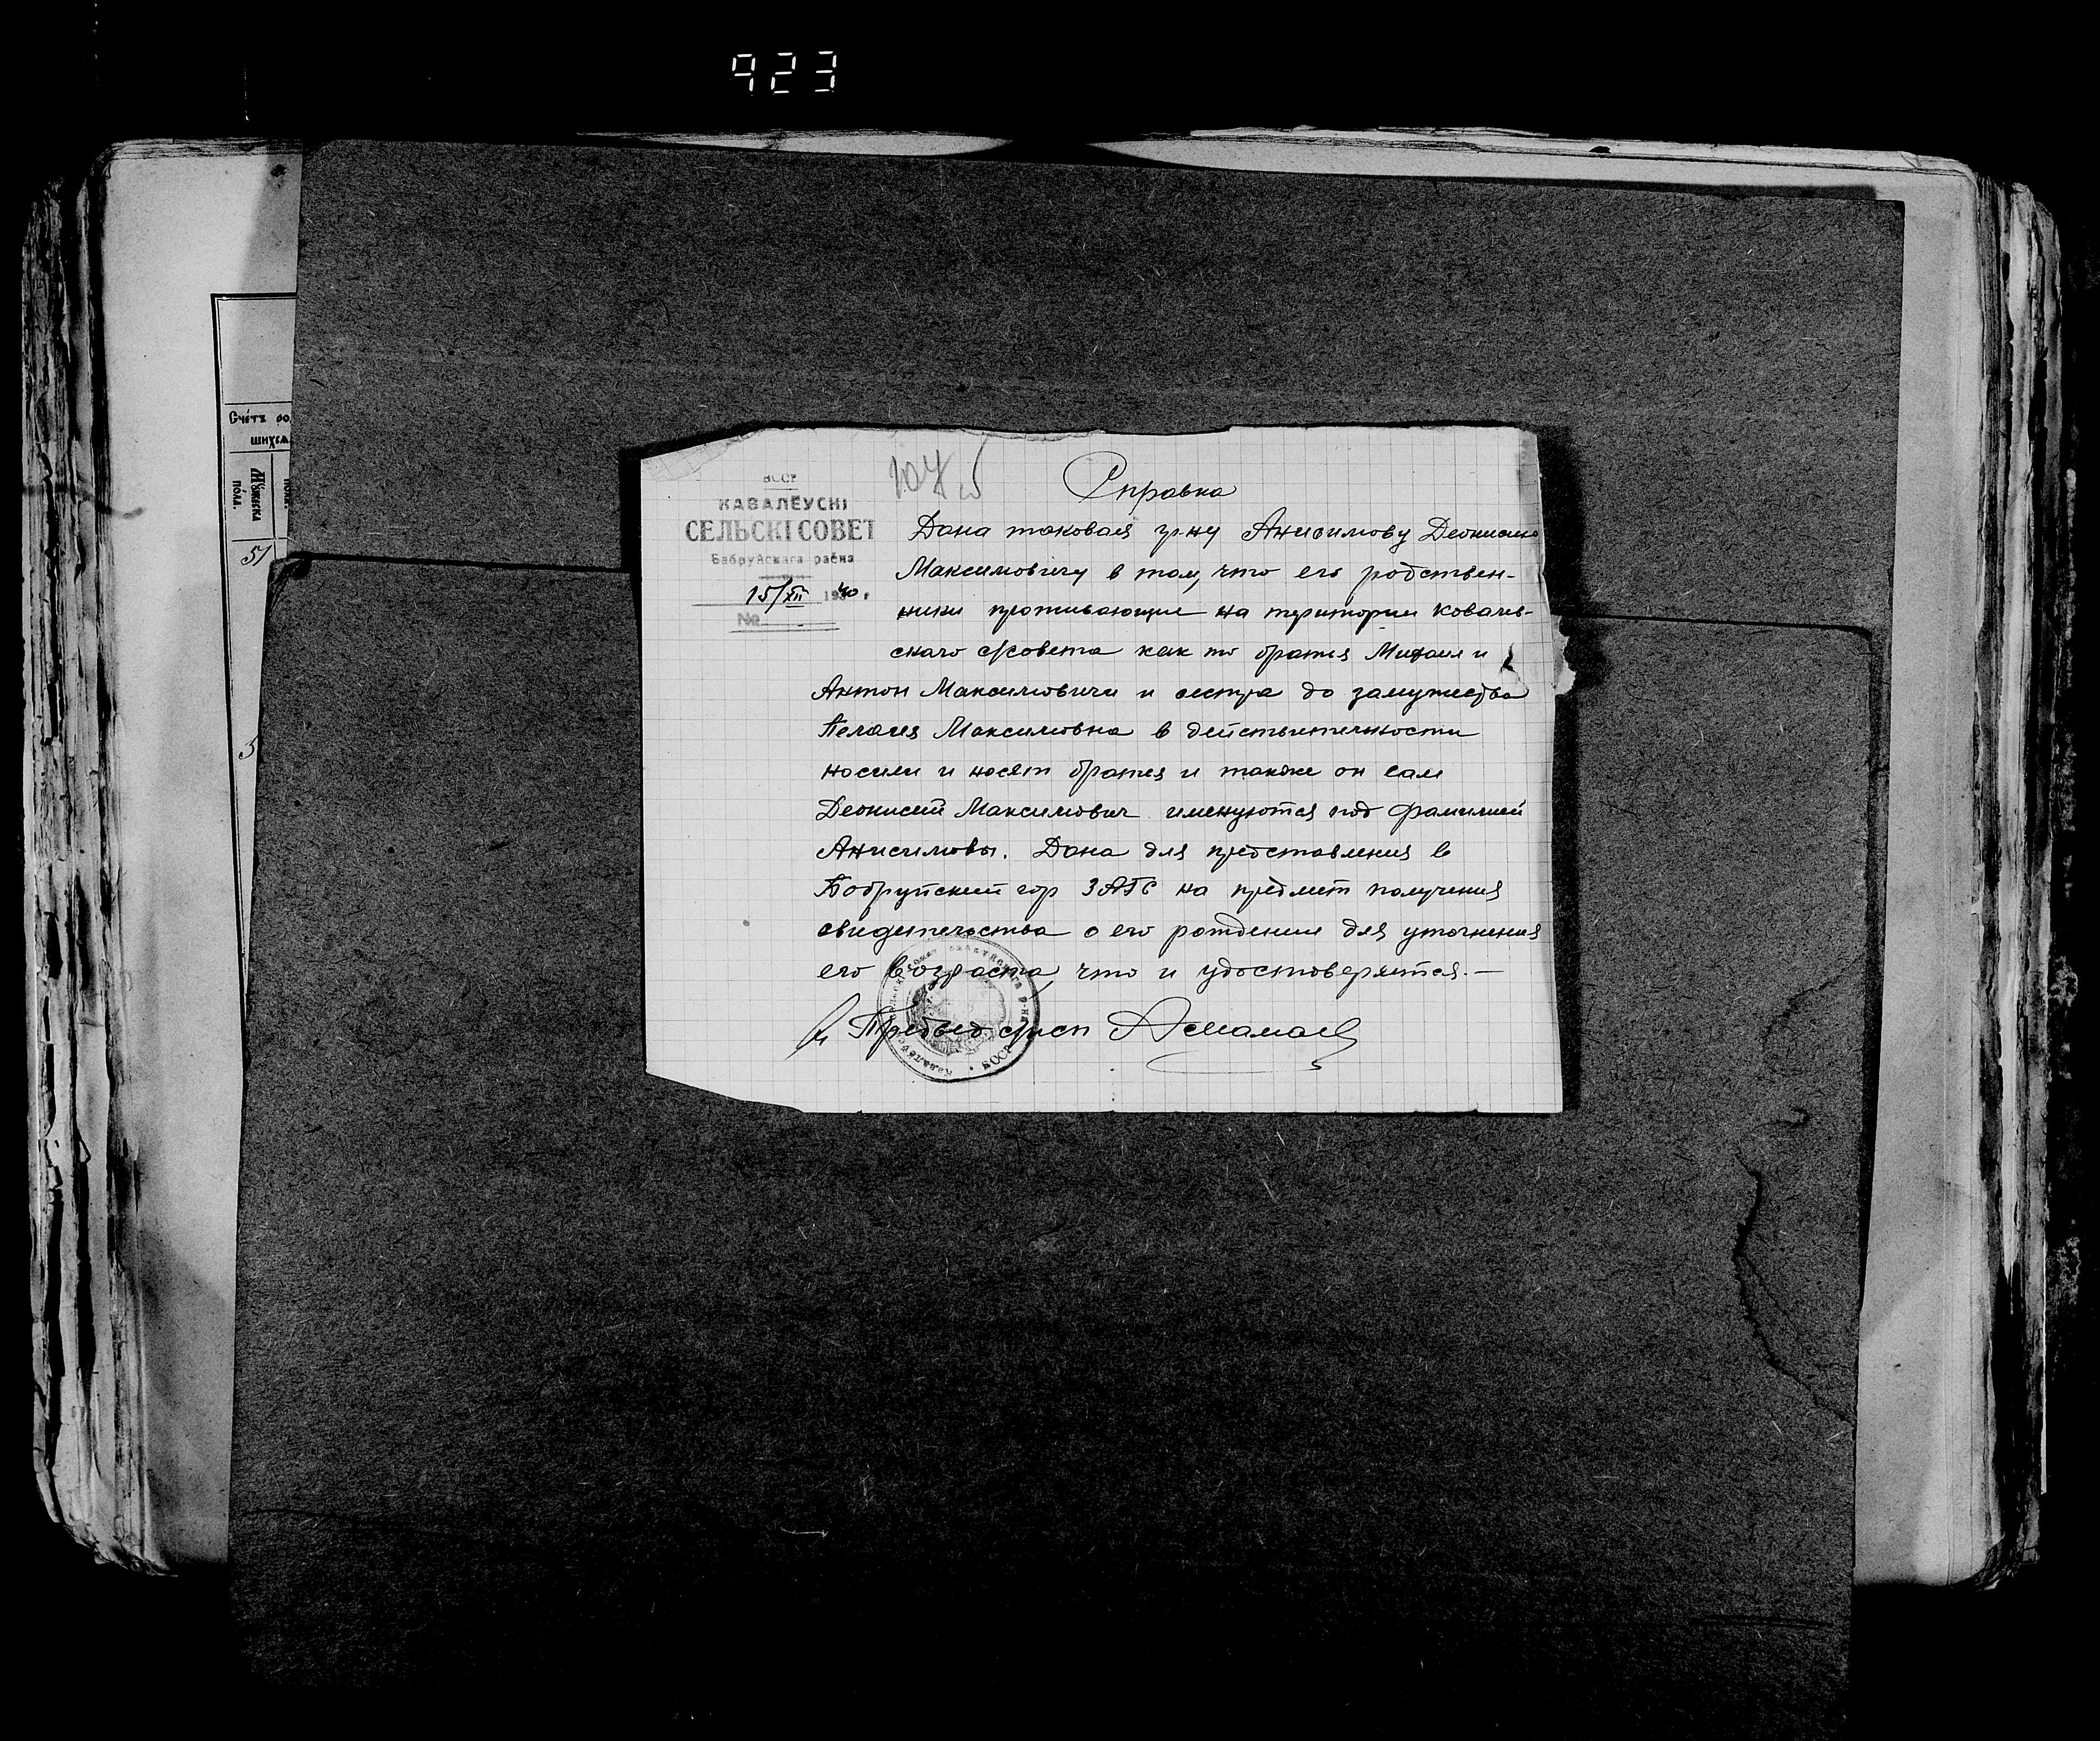 923
Счéтъ ро
шихсѧ
Мужеска
пóла.
51
5
БССР
КАВАЛЁУСКІ
СЕЛЬСКІ СОВЕТ
Бабруйскага раёна
15/XII 1940 г
№
107 б
Справка
Дана таковая гр-ну Анисимову Деонисию
Максимовичу в том, что его родствен-
ники проживающие на територии Ковалев-
ского с/совета как то братья Михаил и
Антон Максимовичи и сестра до замужества
Пелагея Максимовна в действительности
носили и носят братья и также он сам
Деонисий Максимович именуются под фамилией
Анисимовы. Дана для представления в
Бобруйский гор ЗАГС на предмет получения
свидетельства о его рождении для уточнения
его возраста, что и удостоверяется. —
Председ с/исп
БССР